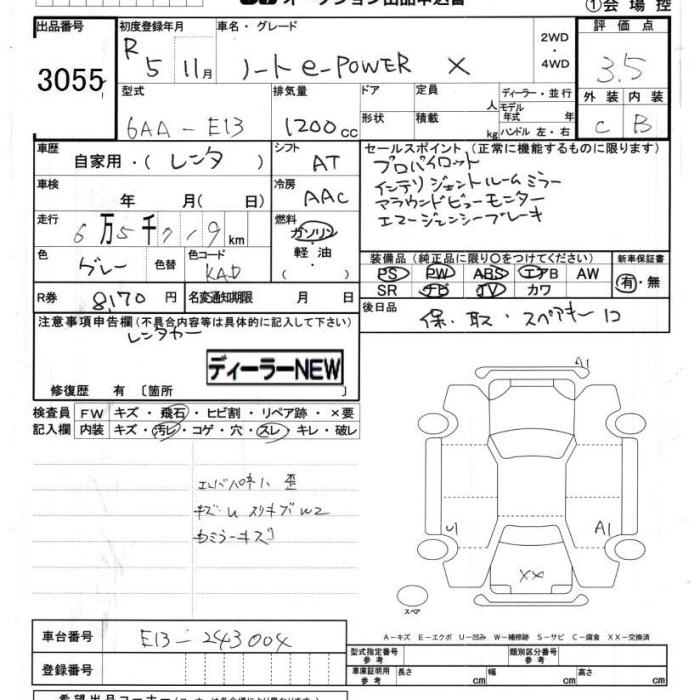 オークション出品申込書
①会場控
出品番号
3055
初度登録年月
R 5 11月
車名・グレード
ノート e-POWER X
2WD・4WD
評価点
3.5
外装 内装
C B
型式
6AA-E13
排気量
1200cc
ドア
形状
定員
人
積載
kg
ディーラー・並行
モデル年式 年
ハンドル 左・右
車歴
自家用・(レンタ)
シフト
AT
セールスポイント(正常に機能するものに限ります)
プロパイロット
インテリジェントルームミラー
アラウンドビューモニター
エマージェンシーブレーキ
車検
年 月( 日)
冷房
AAC
走行
6万5千719km
燃料
ガソリン・軽油・( )
色
グレー
色替
色コード
KAD
装備品(純正品に限り○をつけてください)
PS PW ABS エアB AW
SR ナビ TV カワ
新車保証書
有・無
R券
8,170円
名変通知期限 月 日
後日品
保・取・スペアキー1コ
注意事項申告欄(不具合内容等は具体的に記入して下さい)
レンタカー
ディーラーNEW
修復歴 有〔箇所 〕
検査員記入欄
FW キズ・飛石・ヒビ割・リペア跡・×要
内装 キズ・汚レ・コゲ・穴・スレ・キレ・破レ
歪
A1
U1
A1
XX
スペア
A-キズ E-エクボ U-凹み W-補修跡 S-サビ C-腐食 XX-交換済
車台番号
E13-243004
登録番号
型式指定番号 参考
類別区分番号 参考
車庫証明用 参考
長さ cm 幅 cm 高さ cm